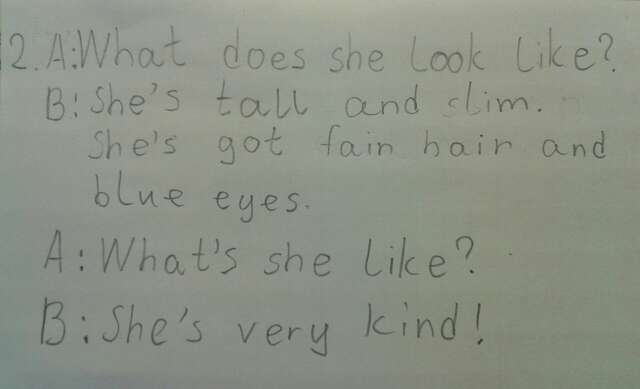 2. A: What does she look like?
B: She's tall and slim.
She's got fair hair and
blue eyes.
A: What's she like?
B: She's very kind!